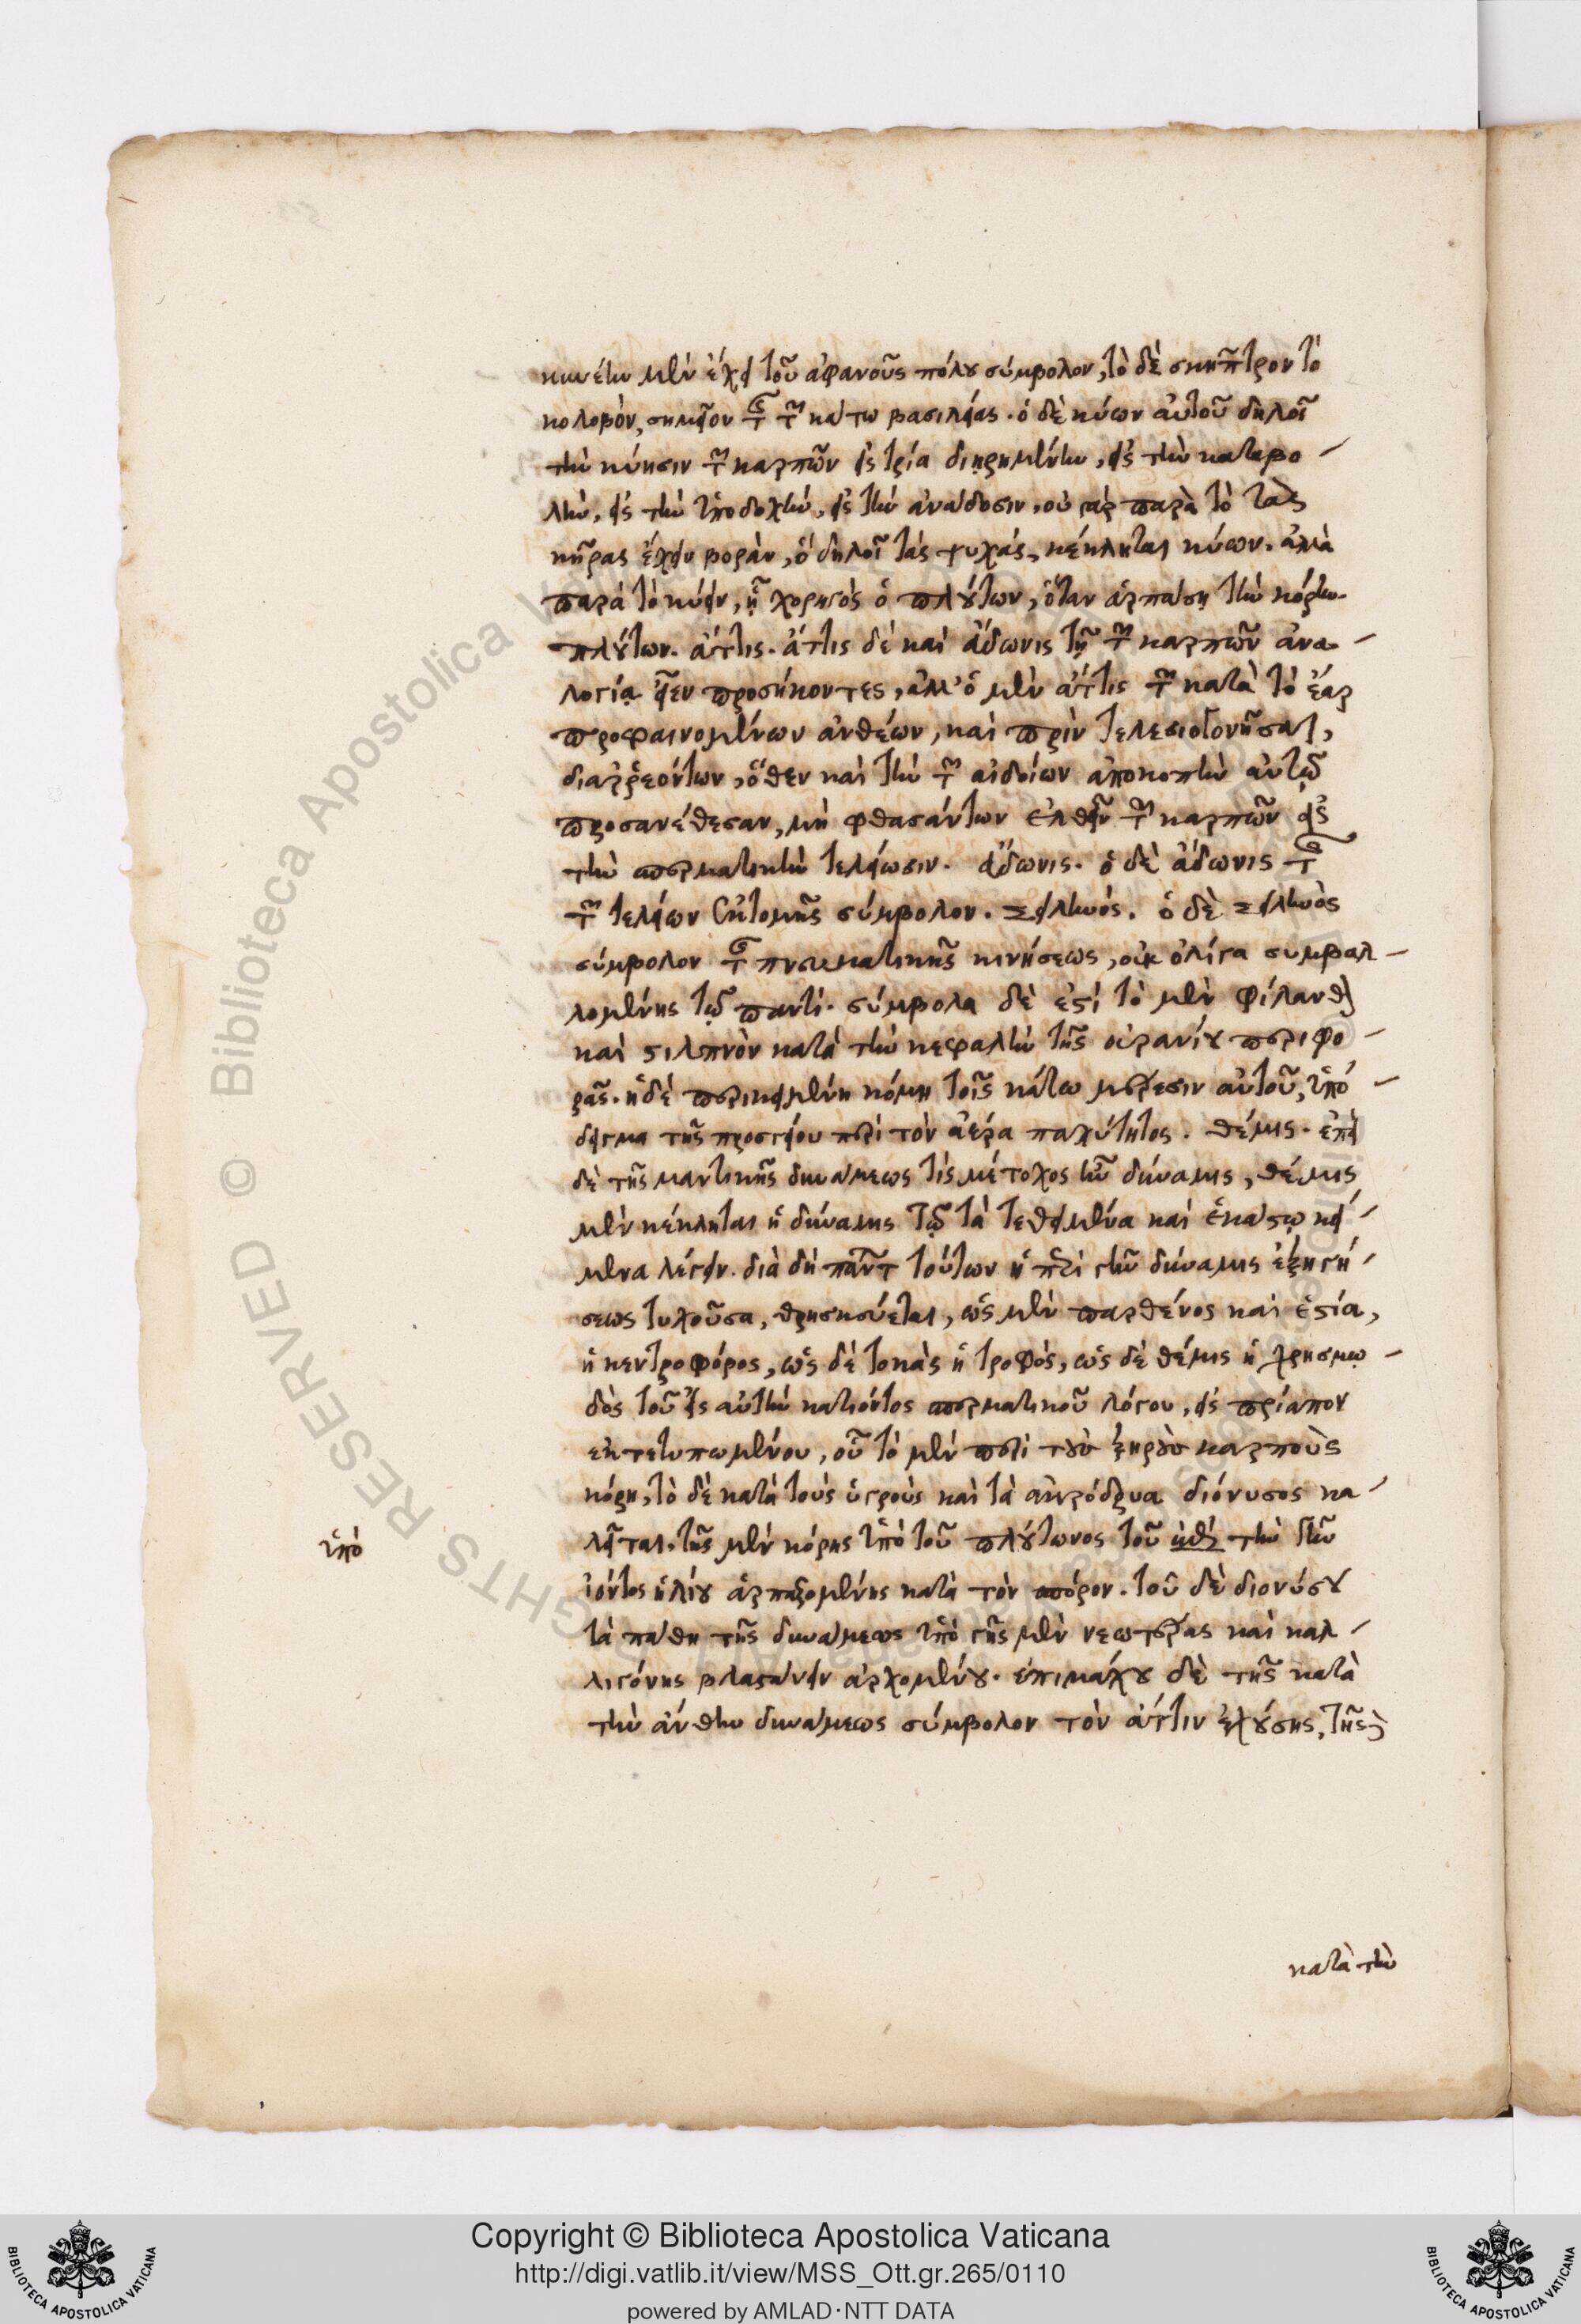 κυνέην μὲν ἔχει τοῦ ἀφανοῦς πόλου σύμβολον, τὸ δὲ σκῆπτρον τὸ
κολοβὸν, σημεῖον τῆς τῶν κάτω βασιλείας. ὁ δὲ κύων αὐτοῦ δηλοῖ
τὴν κύησιν τῶν καρπῶν εἰς τρία διῃρημένην, εἰς τὴν καταβο-
λὴν, εἰς τὴν ὑποδοχὴν, εἰς τὴν ἀνάδοσιν, οὐ γὰρ παρὰ τὸ τὰς
κῆρας ἔχειν βορὰν, ὃ δηλοῖ τὰς ψυχὰς, κέκληται κύων. ἀλλὰ
παρὰ τὸ κύειν, ᾗ χορηγὸς ὁ πλούτων, ὅταν ἁρπάσῃ τὴν κόρην.
πλούτων. ἄττις. ἄττις δὲ καὶ ἄδωνις τῇ τῶν καρπῶν ἀνα-
λογίᾳ εἶεν προσήκοντες, ἀλλ' ὁ μὲν ἄττις τῶν κατὰ τὸ ἔαρ
προφαινομένων ἀνθέων, καὶ πρὶν τελεσιογονῆσαι,
διαρρεόντων, ὅθεν καὶ τὴν τῶν αἰδοίων ἀποκοπὴν αὐτῷ
προσανέθεσαν, μὴ φθασάντων ἐλθεῖν τῶν καρπῶν εἰς
τὴν σπερματικὴν τελείωσιν. ἄδωνις. ὁ δὲ ἄδωνις τῆς
τῶν τελείων ἐκτομῆς σύμβολον. σειληνός. ὁ δὲ σειληνὸς
σύμβολον τῆς πνευματικῆς κινήσεως, οὐκ ὀλίγα συμβαλ-
λομένης τῷ παντί. σύμβολα δὲ ἐστὶ τὸ μὲν φίλανθ
καὶ στιλπνὸν κατὰ τὴν κεφαλὴν τῆς οὐρανίου περιφο-
ρᾶς. ἡ δὲ περικειμένη κόμη τοῖς κάτω μέρεσιν αὐτοῦ, ὑπό
δειγμα τῆς προσγείου περὶ τὸν ἀέρα παχύτητος. θέμις. ἐπεὶ
δὲ τῆς μαντικῆς δυνάμεως τὶς μέτοχος ἦν δύναμις, θέμις
μὲν κέκληται ἡ δύναμις τῷ τὰ τεθειμένα καὶ ἑκάστῳ κεί-
μενα λέγειν. διὰ δὴ πάντων τούτων ἡ περὶ γῆν δύναμις ἐξηγή-
σεως τυχοῦσα, θρησκεύεται, ὡς μὲν παρθένος καὶ ἑστία,
ἡ κεντροφόρος, ὡς δὲ τοκὰς ἡ τροφὸς, ὡς δὲ θέμις ἡ χρησμῳ-
δὸς τοῦ εἰς αὐτὴν κατιόντος σπερματικοῦ λόγου, εἰς πρίαπον
ἐκτετυπωμένου, οὗ τὸ μὲν περὶ τοὺς ξηροὺς καρποὺς
κόρη, τὸ δὲ κατὰ τοὺς ὑγροὺς καὶ τὰ ἀκρόδρυα διόνυσος κα-
λεῖται. τῆς μὲν κόρης ὑπὸ τοῦ πλούτωνος τοῦ κατὰ τὴν γῆν
ἰόντος ἡλίου ἁρπαζομένης κατὰ τὸν σπόρον. τοῦ δὲ διονύσου
ὑπὸ
τὰ πάθη τῆς δυνάμεως ὑπὸ γῆς μὲν νεωτέρας καὶ καλ-
λιγόνης βλαστάνειν ἀρχομένου. ἐπιμάχου δὲ τῆς κατὰ
τὴν ἄνθην δυνάμεως σύμβολον τὸν ἄττιν ἐχούσης, τῆς
κατὰ τὴν
Copyright © Biblioteca Apostolica Vaticana
http://digi.vatlib.it/view/MSS_Ott.gr.265/0110
powered by AMLAD·NTT DATA